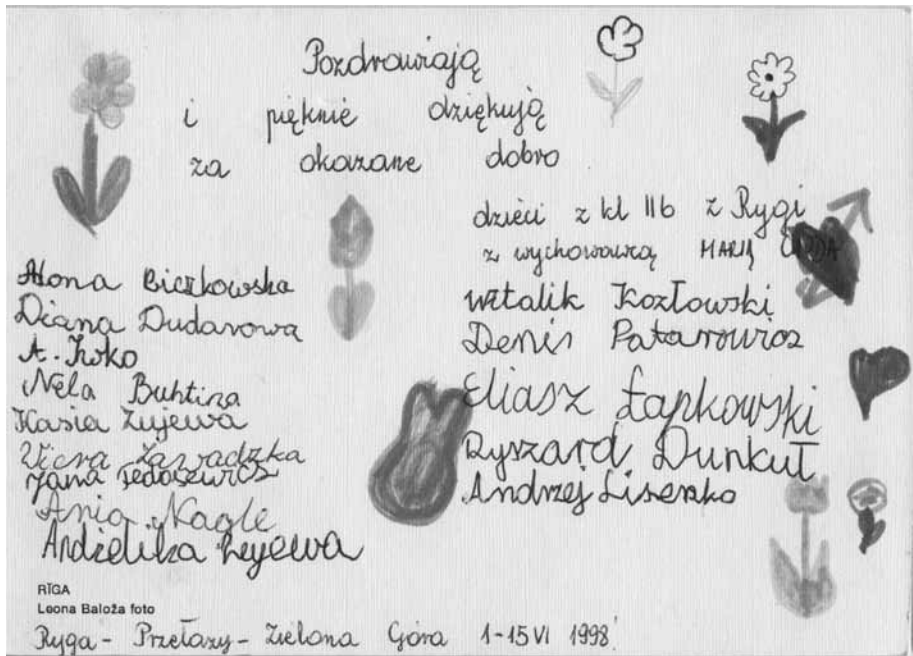 Pozdrawiają
i pięknie dziękują
za okazane dobro
dzieci z kl IIb z Rygi
z wychowawcą MARIĄ
Alona Biczkowska
Diana Dudarowa
A. Irko
Nela Buhtina
Kasia Zujewa
Wiera Zawadzka
Jana Fedosewicz
Ania Nagle
Andżelika Lejewa
Witalik Kozłowski
Denis Patarowicz
Eliasz Łapkowski
Ryszard Dunkuł
Andrzej Lisenko
RĪGA
Leona Baloža foto
Ryga - Przełazy - Zielona Góra 1-15 VI 1998